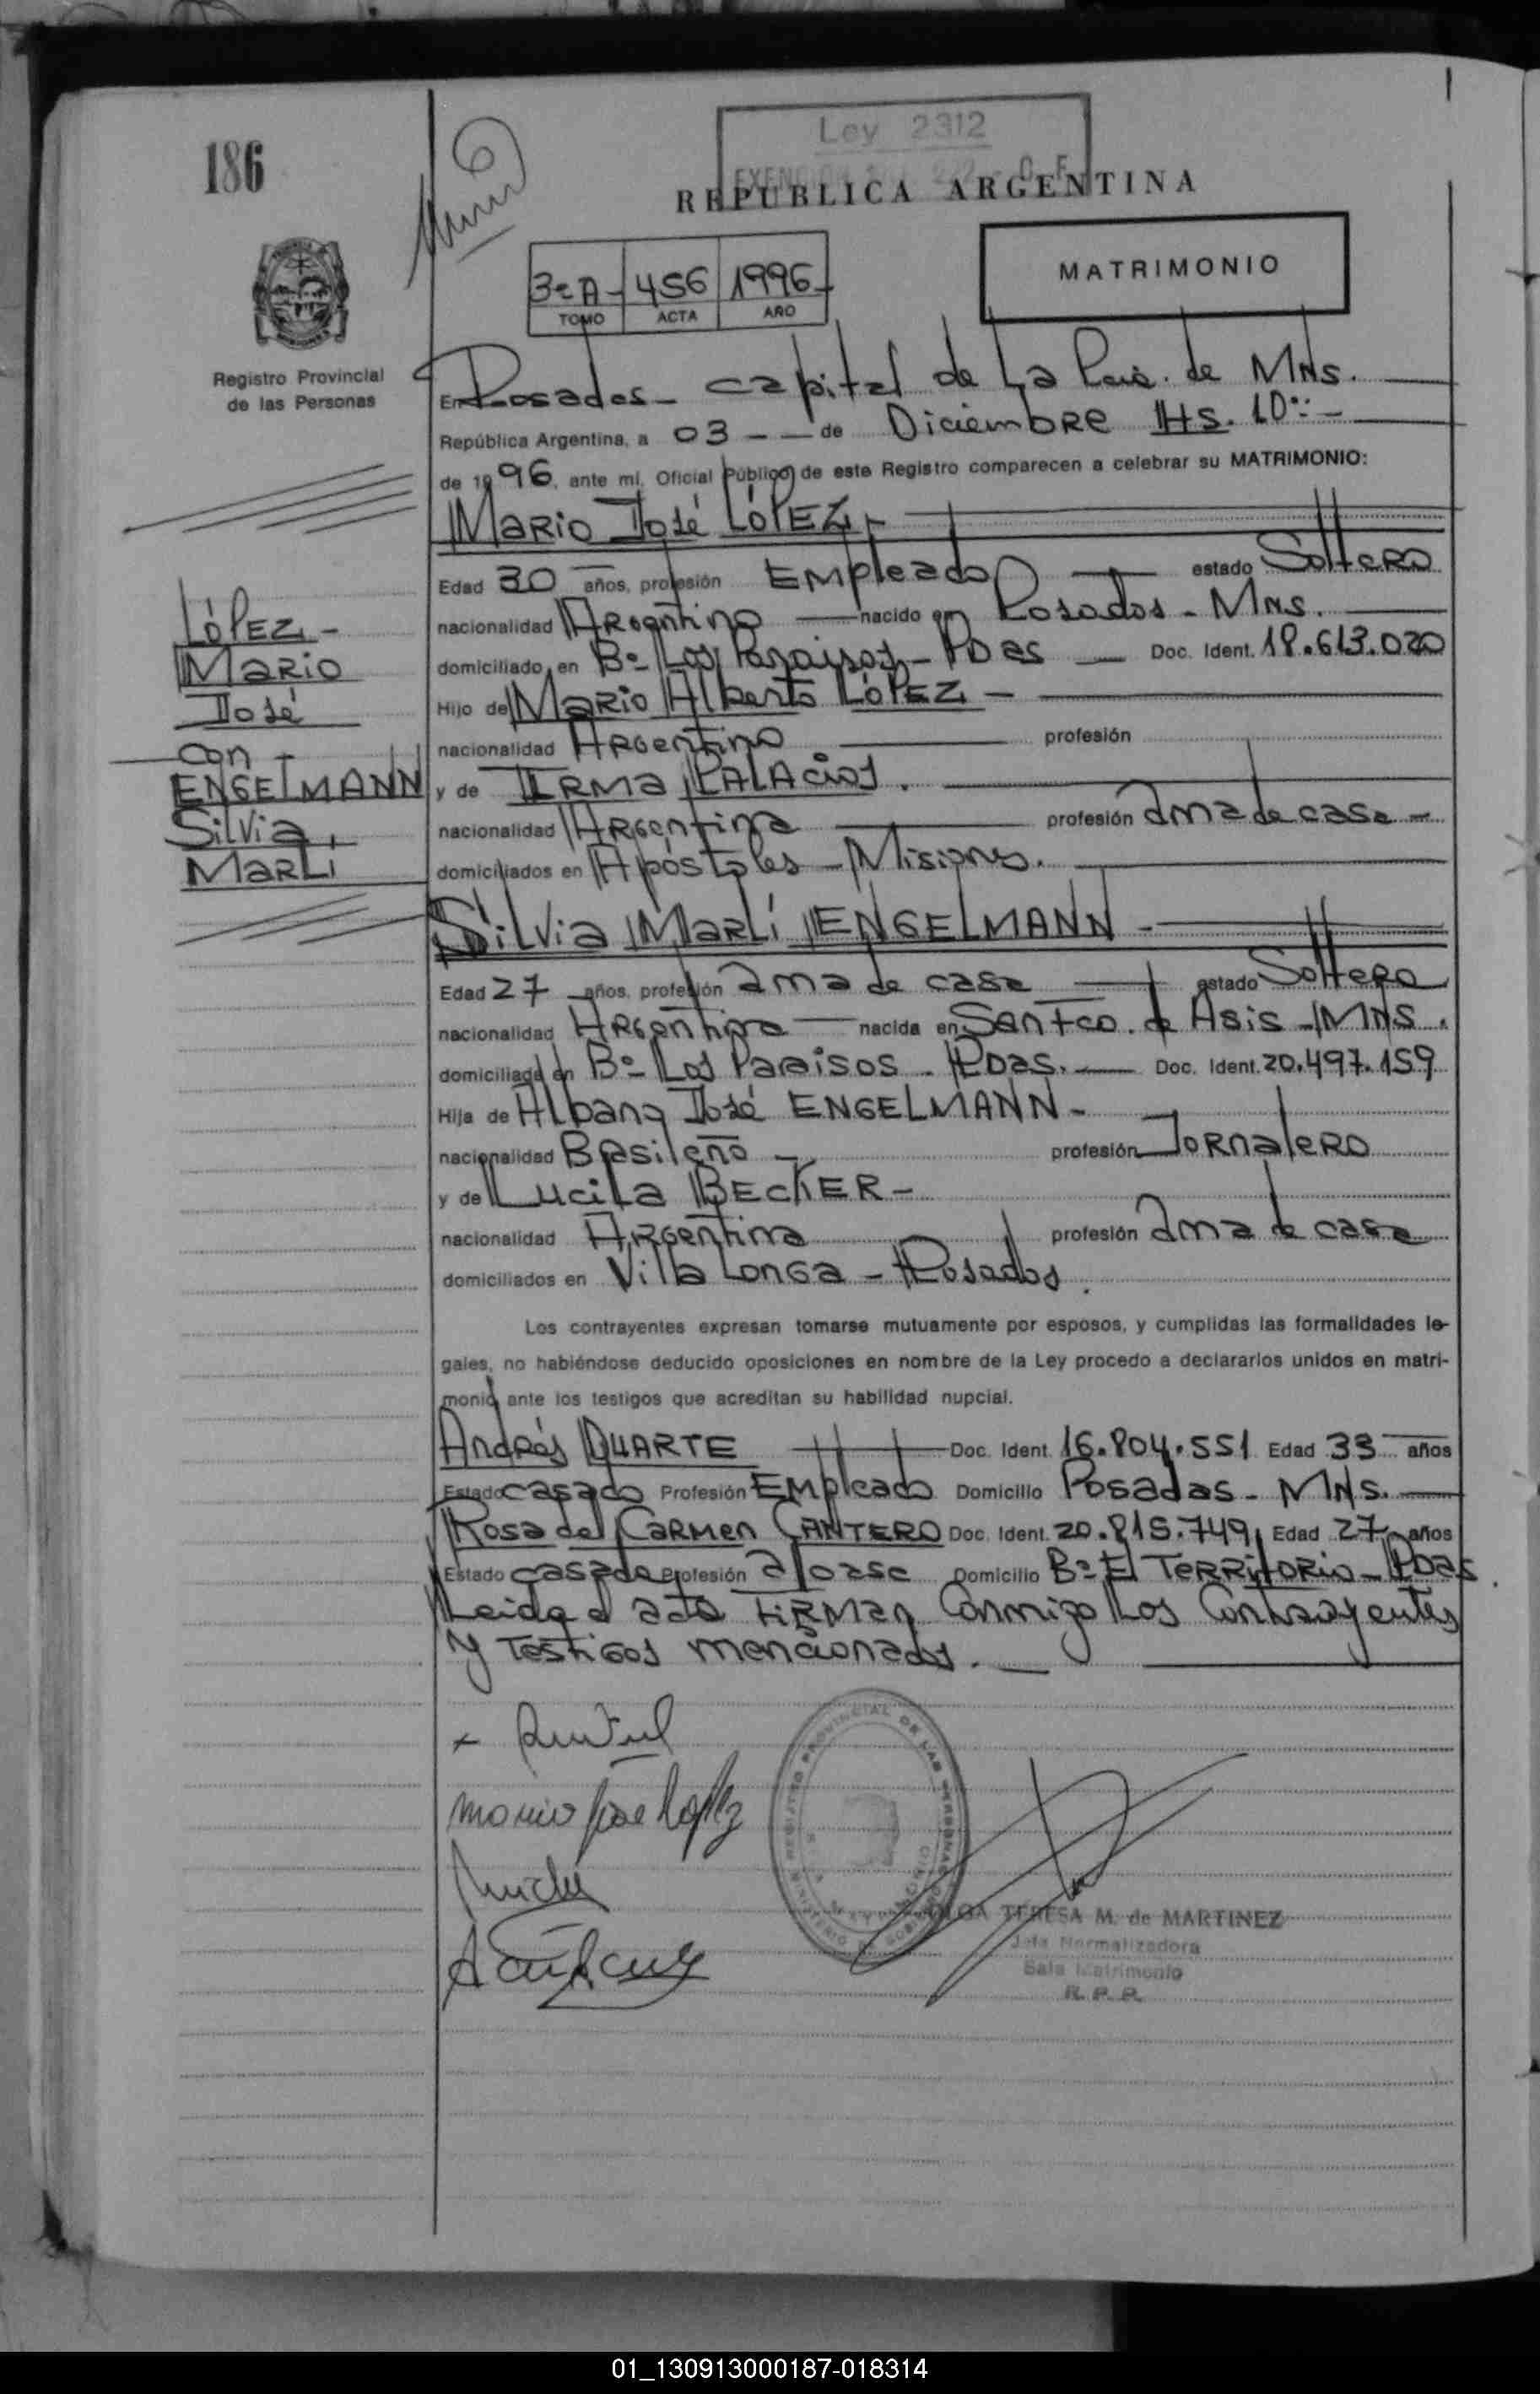 186
Ley 2312
REPUBLICA ARGENTINA
MATRIMONIO
3º A - 456 1996
TOMO ACTA AÑO
Registro Provincial
de las Personas
En Posadas - capital de La Pcia. de MNs.
República Argentina, a 03 - - de Diciembre Hs. 10:-
de 1996, ante mí, Oficial Público de este Registro comparecen a celebrar su MATRIMONIO:
Mario José LÓPEZ -
Edad 30 años, profesión Empleado estado Soltero
nacionalidad Argentino nacido en Posadas - MNs.
domiciliado en Bº Los Paraisos - Pdas Doc. Ident. 18.613.020
Hijo de Mario Alberto LÓPEZ -
nacionalidad Argentino profesión
y de IRMA PALACIOS.
nacionalidad Argentina profesión ama de casa -
domiciliados en Apóstoles - Misiones.
LÓPEZ -
Mario
José
con -
ENGELMANN
Silvia
Marlí
Silvia Marlí ENGELMANN -
Edad 27 años, profesión ama de casa estado Soltera
nacionalidad Argentina nacida en San Fco. de Asis - MNs.
domiciliada en Bº Los Paraisos - Pdas. Doc. Ident. 20.497.159
Hija de Albano José ENGELMANN -
nacionalidad Brasileño - profesión Jornalero
y de Lucila BECKER -
nacionalidad Argentina profesión ama de casa
domiciliados en Villa Longa - Posadas.
Los contrayentes expresan tomarse mutuamente por esposos, y cumplidas las formalidades le-
gales, no habiéndose deducido oposiciones en nombre de la Ley procedo a declararlos unidos en matri-
monio ante los testigos que acreditan su habilidad nupcial.
Andrés DUARTE Doc. Ident. 16.804.551 Edad 33 años
Estado casado Profesión Empleado Domicilio Posadas - MNs.
Rosa del Carmen CANTERO Doc. Ident. 20.815.749 Edad 27 años
Estado casada Profesión Domicilio Bº El Territorio - Pdas.
Leida el acta firman Conmigo Los Contrayentes
y Testigos mencionados.
Mario José López
OLGA TERESA M. de MARTINEZ
Jefa Normalizadora
Sala Matrimonio
R. P. P.
01_130913000187-018314